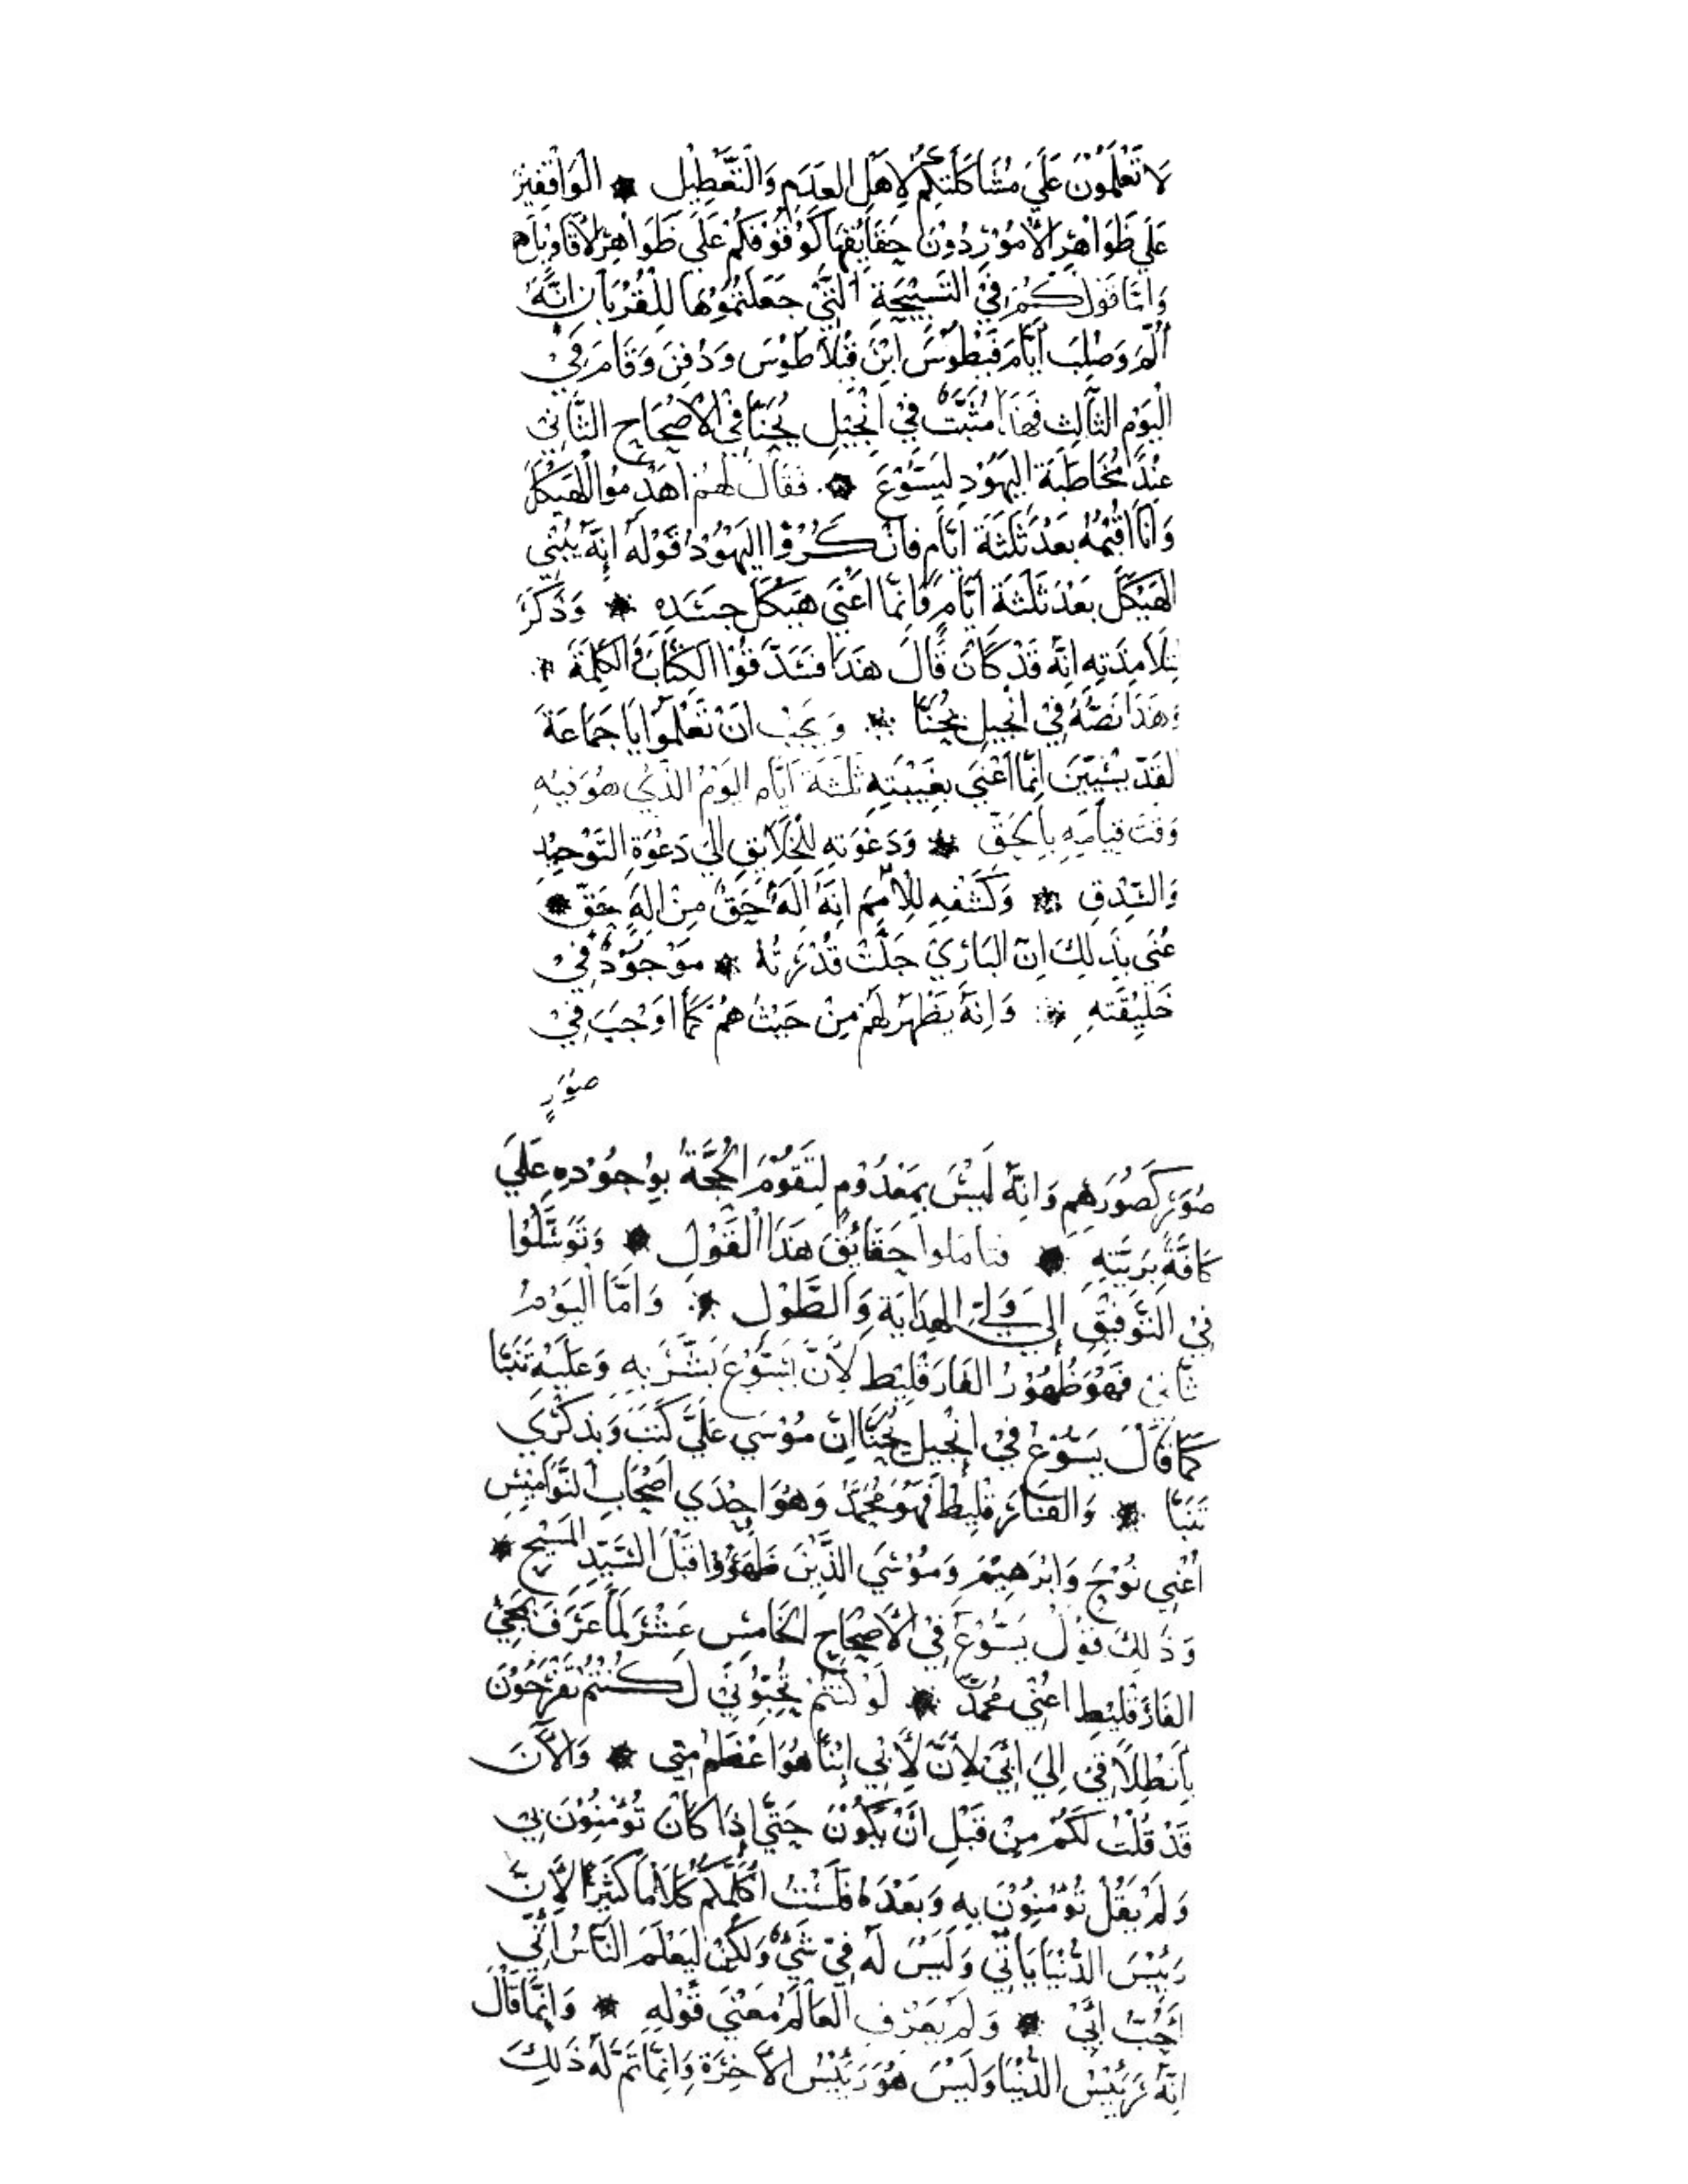 لَا تَعْلَمُوْنَ عَلَيَ مُشَاكَلَتِكُمْ لِاَهْلِ العَدَمِ وَالتَّعْطِيْل * الْوَاقِفِيْن
عَلَي ظَوَاهْرِ الأُمُوْرِ دُوْنَ حَقَايُقِهَا كَوُقُوْفِكُمْ عَلَى ظَوَاهِرِ الأقَاوِيْلِ
وَامَّا قَوْلكُمْ فِيْ التَسْبِيْحَةِ الَّتِيْ جَعَلتُمُوْهَا لِلْقُرْبَان انَّهُ
أُلِّمَ وَصُلِبَ اَيَّامَ فَبْطُوْسَ ابْنَ فِيْلَاطُوْسَ وَدُفِنَ وَقَامَ فِيْ
الْيَوْمِ الثَّالِثِ فَهَذَا مُثَبَّتٌ فِيْ اِنْجِيْلِ يُحَنَّا فِيْ الأصْحَاحِ الثَّانِيْ
عِنْدَ مُخَاطَبَة اليَهُوْدِ ليَسُوْعَ * فَقَالَ لَهُمْ اهْدِمُوا الْهَيْكَلَ
وَاَنَا اُقِيْمُهُ بَعْدَ ثَلثَةَ اَيَّامٍ فَانْكَرُوْا اليَهُوْدُ قَوْلَهُ اِنَّهُ يَبْنِي
الهَيْكَلَ بَعْدَ ثَلَثَةِ اَيَّامٍ وَانِمَّا اَعْنَى هَيْكَلَ جَسَدِهِ * وَذَكَرَ
تِلَامِذَتِهِ اِنَّهُ قَدْ كَانَ قَالَ هَذَا فَسَدَّقُوْا الكِتَابَ وَالْكَلِمَةَ *
وَهَذَا نَصُّهُ فِيْ انْجِيلِ يُحَنَّا * وَيَجِبْ انْ تَعْلَمُوْا يَا جَمَاعَةَ
القِدِّيْسِيِّيْنَ اِنَّمَا اَعْنَى بِغَيْبَتِهِ ثَلثَةَ اَيَّام اليَوْمُ الَّذِيْ هُوَ فِيْهِ
وَقْتَ قِيَامِهِ بِالحَقِّ * وَدَعْوَتِهِ لِلْخَلَايِقِ اِلَىَ دَعْوَةِ التَّوْحِيْدِ
وَالسِّدْقِ * وَكَشْفِهِ لِلأُمَمِ انَّهُ اَلَهُ حَقْ مِنْ اِلَهِ حَقّ *
عُنَى بِذَلِكَ اِنّ البَارِيَ جَلَّتْ قُدْرَتُهُ * مَوْجُوْدٌ فِيْ
خَلِيْقَتِهِ * وَاِنَّهُ يَظْهَرُ لَهُمْ مِنْ حَيْثُ هُمْ كَمَا اوْجَبَ فِيْ
صُوَرٍ
صُوَرٍ كَصُوَرِهِمِ وَانِّهُ لَيْسَ بِمَعْدُوْمٍ لِتَقُوْمَ الحُجَّةُ بِوُجُوْدِهِ عَلَيَ
كَافَّةِ بَرِيَّتِهِ * فتاملوا حَقَايُقَ هَذَا الْقَوْلِ * وَتَوَسَّلُوْا
فِيْ التَّوْفِيْقِ إِلَيَ وَلِيِّ الهِدَايَةِ وَالطَّوْلِ * وَامَّا الْيَوْمُ
ثَانِيْ فَهْوَ ظُهُوْرُ الفَارَقْلِيْط لِأَنَّ يَسُوْعَ بَشَّرَ بِهِ وَعَلَيْهْ تَنَبَّا
كَمَا قَالَ يَسُوْعْ فِيْ انْجِيلِ يُحَنَّا اِنَّ مُوْسَي عَلَيَّ كَتَبَ وَبِذِكْرَي
تَنَبَّا * وَالفَارَقْلِيْطْ فَهُوَ مُحَمَّدْ وَهُوَ احْدَي اَصْحَابِ النَّوَامِيْسِ
أَعْنِي نُوْحَ وَابْرَهِيْمَ وَمُوْسَي الَّذِيْنَ ظَهَرُوْا قَبْلَ السَّيِّدِ المَسِيْحِ *
وَذَلِكَ قَوْلُ يَسُوْعَ فِيْ الأَصْحَاحِ الخَامِسِ عَشَرَ لَمَّا عَرَّفَ بِمَجِيْ
الفَارَقْلِيْطِ اعْنِيْ مُحَمَّدْ * لَوْ كُنْتُمْ تُحِبُّوْنِيْ لَكُنْتُمْ تَفْرَحُوْنَ
بِاَنْطِلَاقِيْ اِلَي اَبِيْ لِأَنَّ لِأَبِي اِبْنًا هُوَ اعْظَمْ مِنِّي * وَالآنَ
قَدْ قُلْتْ لَكُمْ مِنْ قَبْلِ اَنْ يَكُوْنَ حَتَّي إِذَا كَانَ تُؤْمِنُوْنَ بِيْ
وَلَمْ يَقُلْ تُؤْمِنُوْنَ بِهِ وَبَعْدَهُ فَلَسْتُ اُكَلِّمكُمْ كَلَامًا كَثِيْرًا لِأَنّ
رَئِيْسَ الدُّنْيَا يَاتِي وَلَيْسَ لَهُ فِيَّ شَيْءٌ وَلَكِنْ لِيَعْلَمَ النَّاسُ اَنِّي
أُحِبُّ اَبِيْ * وَلَمْ يَعْرِفِ العَالَمُ مَعْنَى قَوْلِهِ * وَانِّمَا قَالَ
انّهُ رَئِيْسُ الدُّنْيَا وَلَيْسَ هُوَ رَئِيْسُ الأَخِرَةِ وَانِّمَا تَمّ لَهُ ذَلِكَ